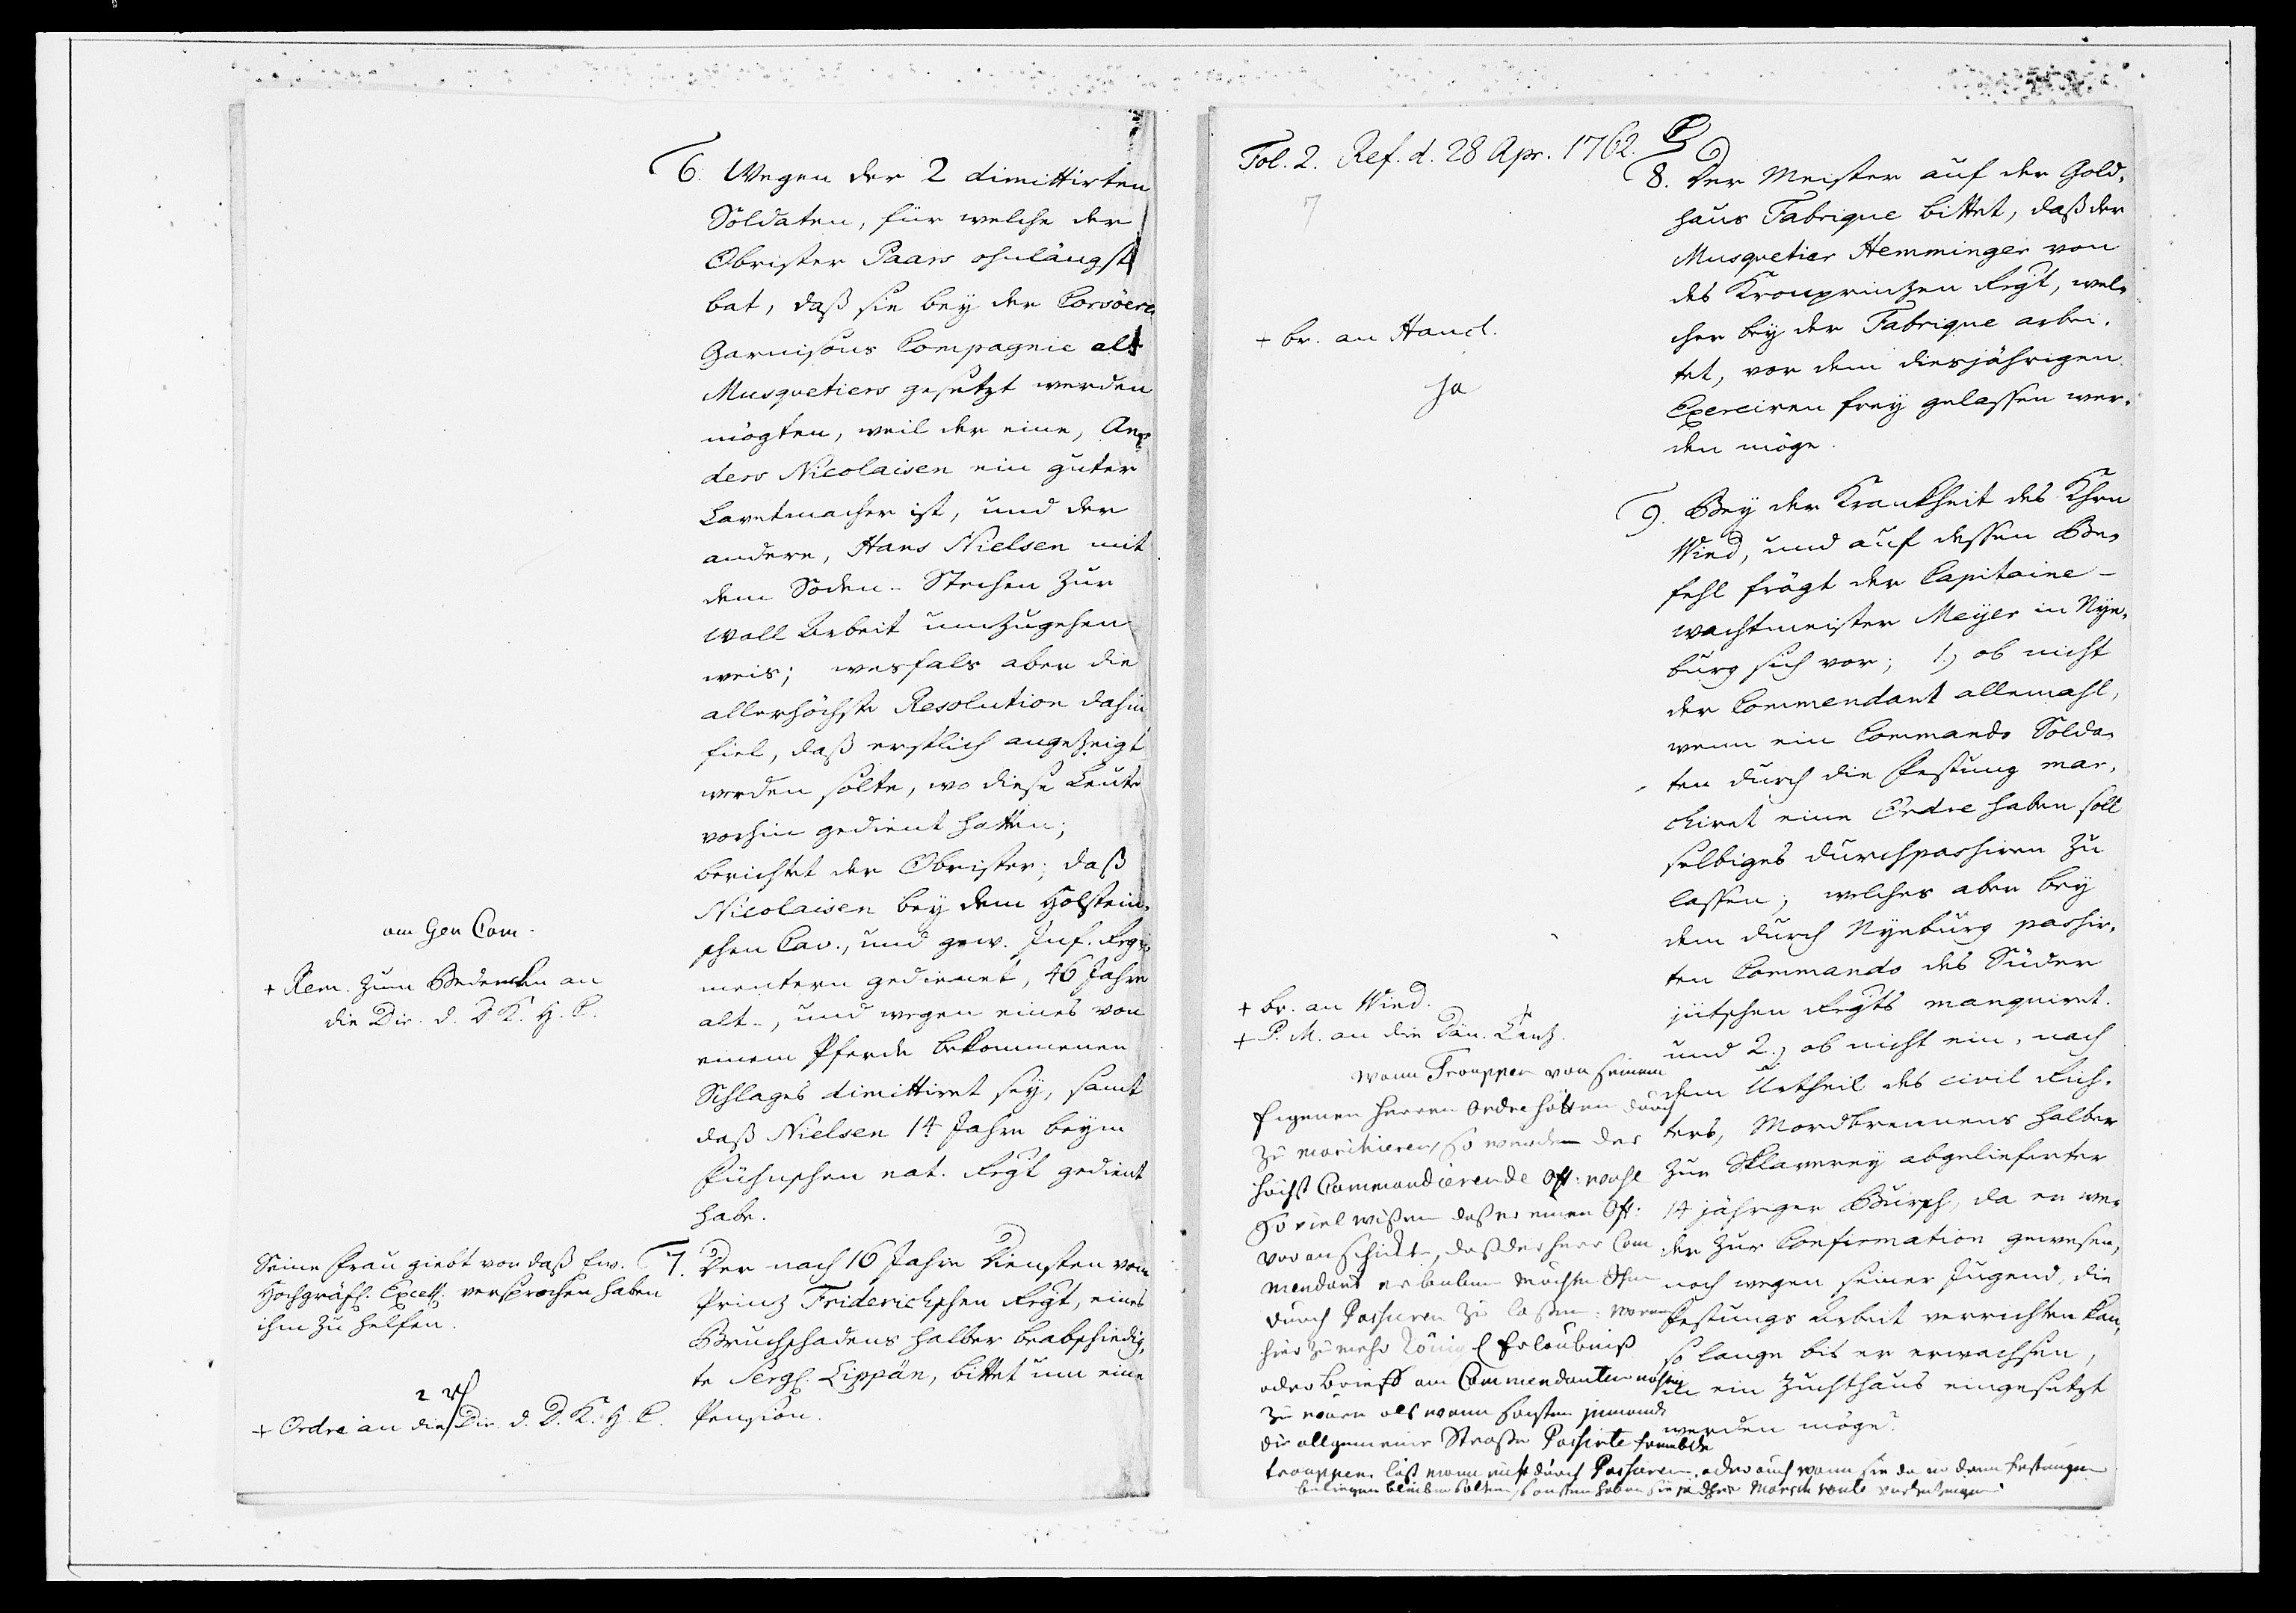 6. Wegen der 2 dimittirten
Soldaten, für welche der
Obrister Paars ohnlängst
bat, daß sie bey der Corsöer
Garnisons Compagnie als
Musquetiers gesetzt werden
mögten, weil der eine, An¬
ders Nicolaisen ein guter
Lavetmacher ist, und der
andere, Hans Nielsen mit
dem Soden-Stechen zur
Wall Arbeit umzugehen
weis; wesfals aber die
allerhöchste Resolution dahin
fiel, daß erstlich angezeigt
werden solte, wo diese Leute
vorhin gedient hatten;
berichtet der Obrister; daß
Nicolaisen bey dem Holstein¬
schen Cav., und gew. Inf. Regi¬
mentern gedienet, 46 Jahre
alt, und wegen eines von
einem Pferde bekommenen
Schlages dimittiret sey, samt
daß Nielsen 14 Jahre beym
Fühnschen nat. Regt gedient
habe.
am Gen Com.
+ Rem. zum Bedencken an
die Dir. d. D K. H. C.
7. Der nach 16 Jahre Diensten vom
Prinz Friderichschen Regt, eines
Bruchschadens halber beabschiedig¬
te Serg. Lippän, bittet um eine
Pension.
Seine Frau giebt vor daß Ew.
Hochgräfl. Excell. versprochen haben
ihm zu helfen.
2 rt
+ Ordre an die Dir. d. D. K. H. C.
Fol. 2. Ref. d. 28 Apr. 1762.
7
8. Der Meister auf der Gold¬
haus Fabrique bittet, daß der
Musquetier Hemminger von
des Kronprinzen Regt, wel¬
cher bey der Fabrique arbei¬
tet, vor dem diesjährigen
Exerciren frey gelassen wer¬
den möge.
+ br. an Hauch.
ja
9. Bey der Kranckheit des Khrn
Wind, und auf dessen Be¬
fehl frägt der Capitaine-
wachtmeister Meyer in Nye¬
burg sich vor; 1.) ob nicht
der Commendant allemahl,
wenn ein Commando Solda¬
ten durch die Festung mar¬
chiret eine Ordre haben soll
selbiges durchpassiren zu
lassen; welches aber bey
dem durch Nyeburg passir¬
ten Commando des Süder
jütschen Regts manquiret.
und 2.) ob nicht ein, nach
dem Urtheil des civil Rich¬
ters, Mordbrennens halber
zur Sklaverey abgelieferter
14 jähriger Bursch, da er we¬
der zur Confirmation gewesen,
noch wegen seiner Jugend, die
Festungs Arbeit verrichten kan,
so lange bis er erwachsen,
in ein Zuchthaus eingesetzt
werden möge?
+ br. an Wind.
+ P. M. an die Dän. Cantz.
wann Trouppen von seinem
Eigenen Herren ordre hätten durch
zu marchieren, so werden der
höchst Commandierende Off: wohl
So viel wißen daß er einen Off:
voran schicke, daß der Herr Com
mendant erlauben möchte Ihm
durch Passiren zu laßen:
hier zu mehr Königl Erlaubniß
oder brieff am Commendanten nöthig
zu wären als wann sonsten jemands
die allgemeine Straße Passirte frembde
trouppen läst mann nicht durch Passiren, oder auch wann sie da in denen Festungen